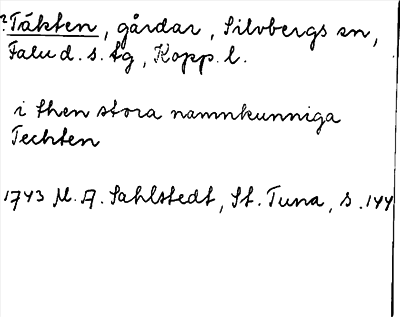 ?Täkten, gårdar, Silvbergs sn,
Falu d. s. tg, Kopp. l.
i then stora namnkunniga
Techten
1743 M. A. Sahlstedt, St. Tuna, s. 144